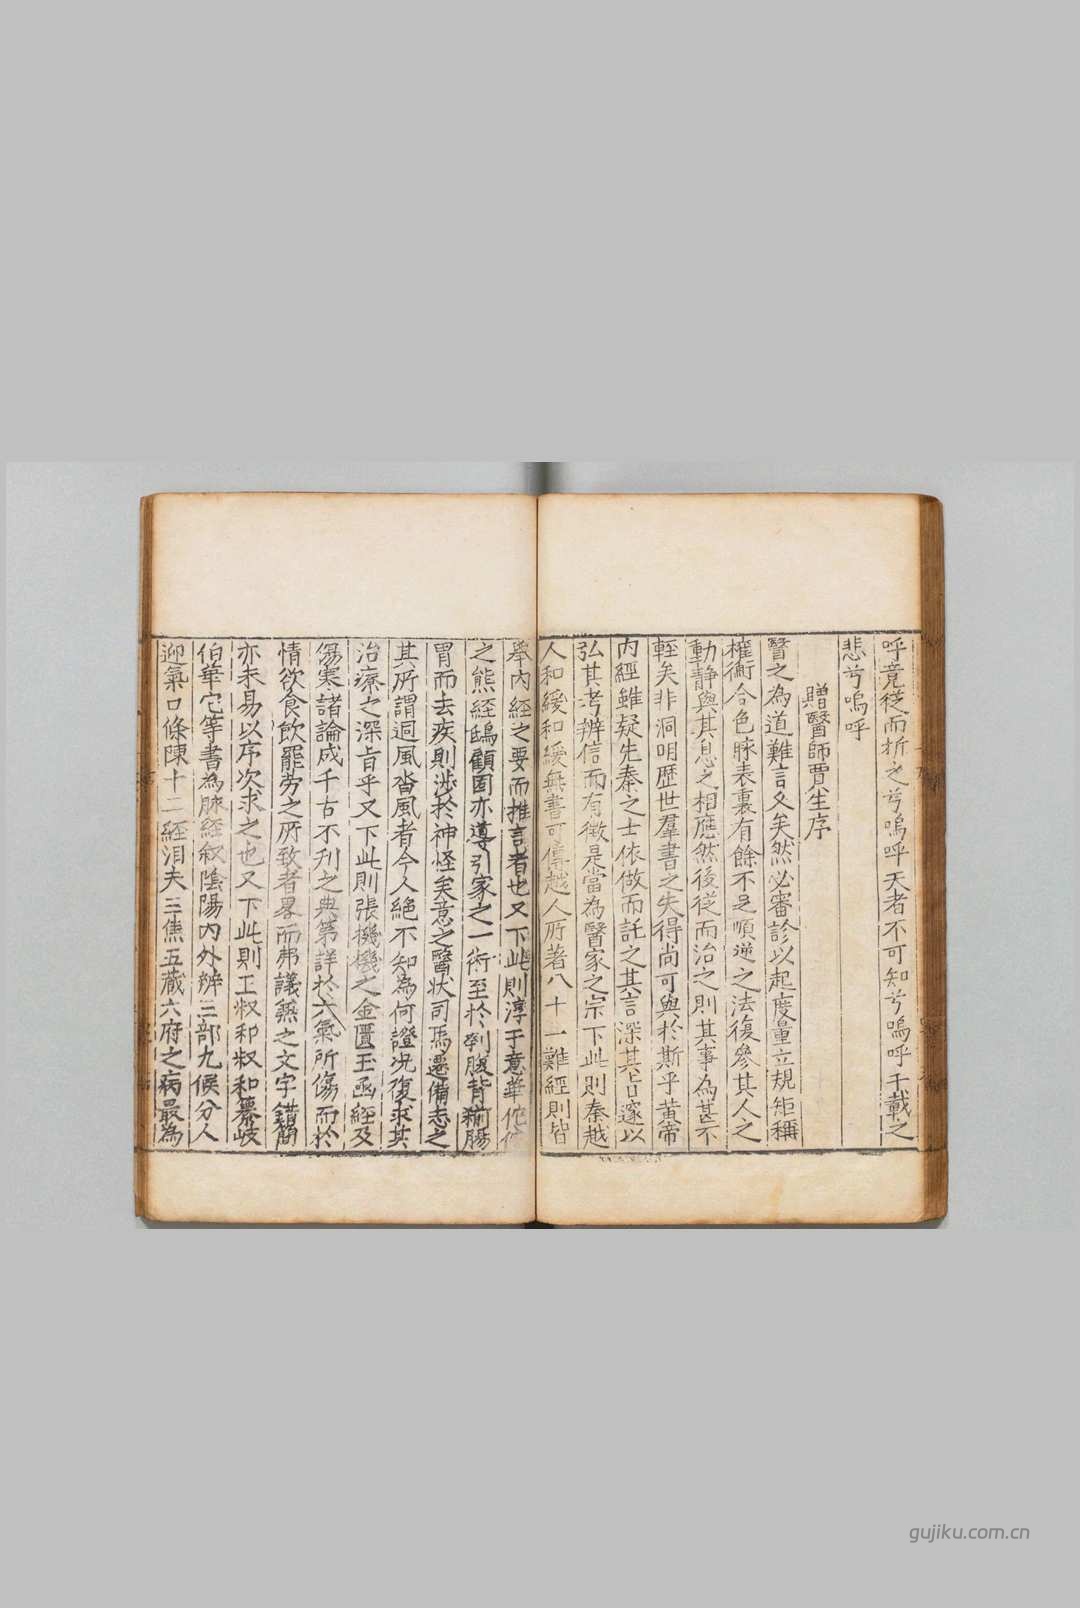 呼竟從而折之兮嗚呼夭者不可知兮嗚呼千載之
悲兮嗚呼
贈醫師賈生序
醫之為道難言久矣然必審診以起度量立規矩稱
權衡合色脉表裏有餘不足順逆之法復參其人之
動靜與其息之相應然後從而治之則其事為甚不
輕矣非洞明歷世羣書之失得尚可與於斯乎黃帝
內經雖疑先秦之士依倣而託之其言深其占邃以
弘其考辨信而有徵是當為醫家之宗下此則秦越
人和緩和緩無書可傳越人所著八十一難經則皆
舉內經之要而推言者也又下此則淳于意華佗佗
之熊經鴟顧固亦導引家之一術至於刳腹背湔腸
胃而去疾則涉於神怪矣意之醫狀司馬遷備志之
其所謂迥風沓風者今人絕不知為何證況復求其
治療之深旨乎又下此則張機機之金匱玉函經及
傷寒諸論成千古不刊之典第詳於六氣所傷而於
情欲食飲罷勞之所致者畧而弗議蕪之文字錯簡
亦未易以序次求之也又下此則王叔和叔和纂岐
伯華它等書為脉經叙陰陽內外辨三部九候分人
迎氣口條陳十二經洎夫三焦五藏六府之病最為
gujiku.com.cn